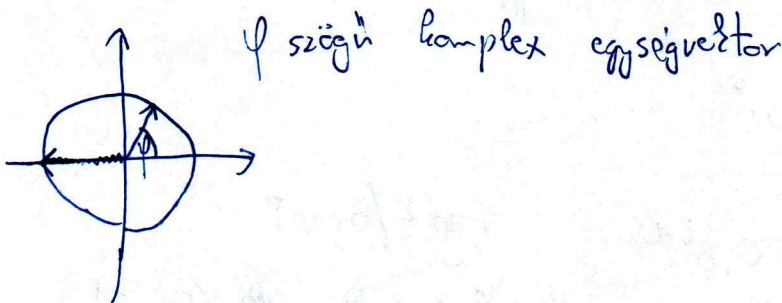 φ szögű komplex egységvektor
φ